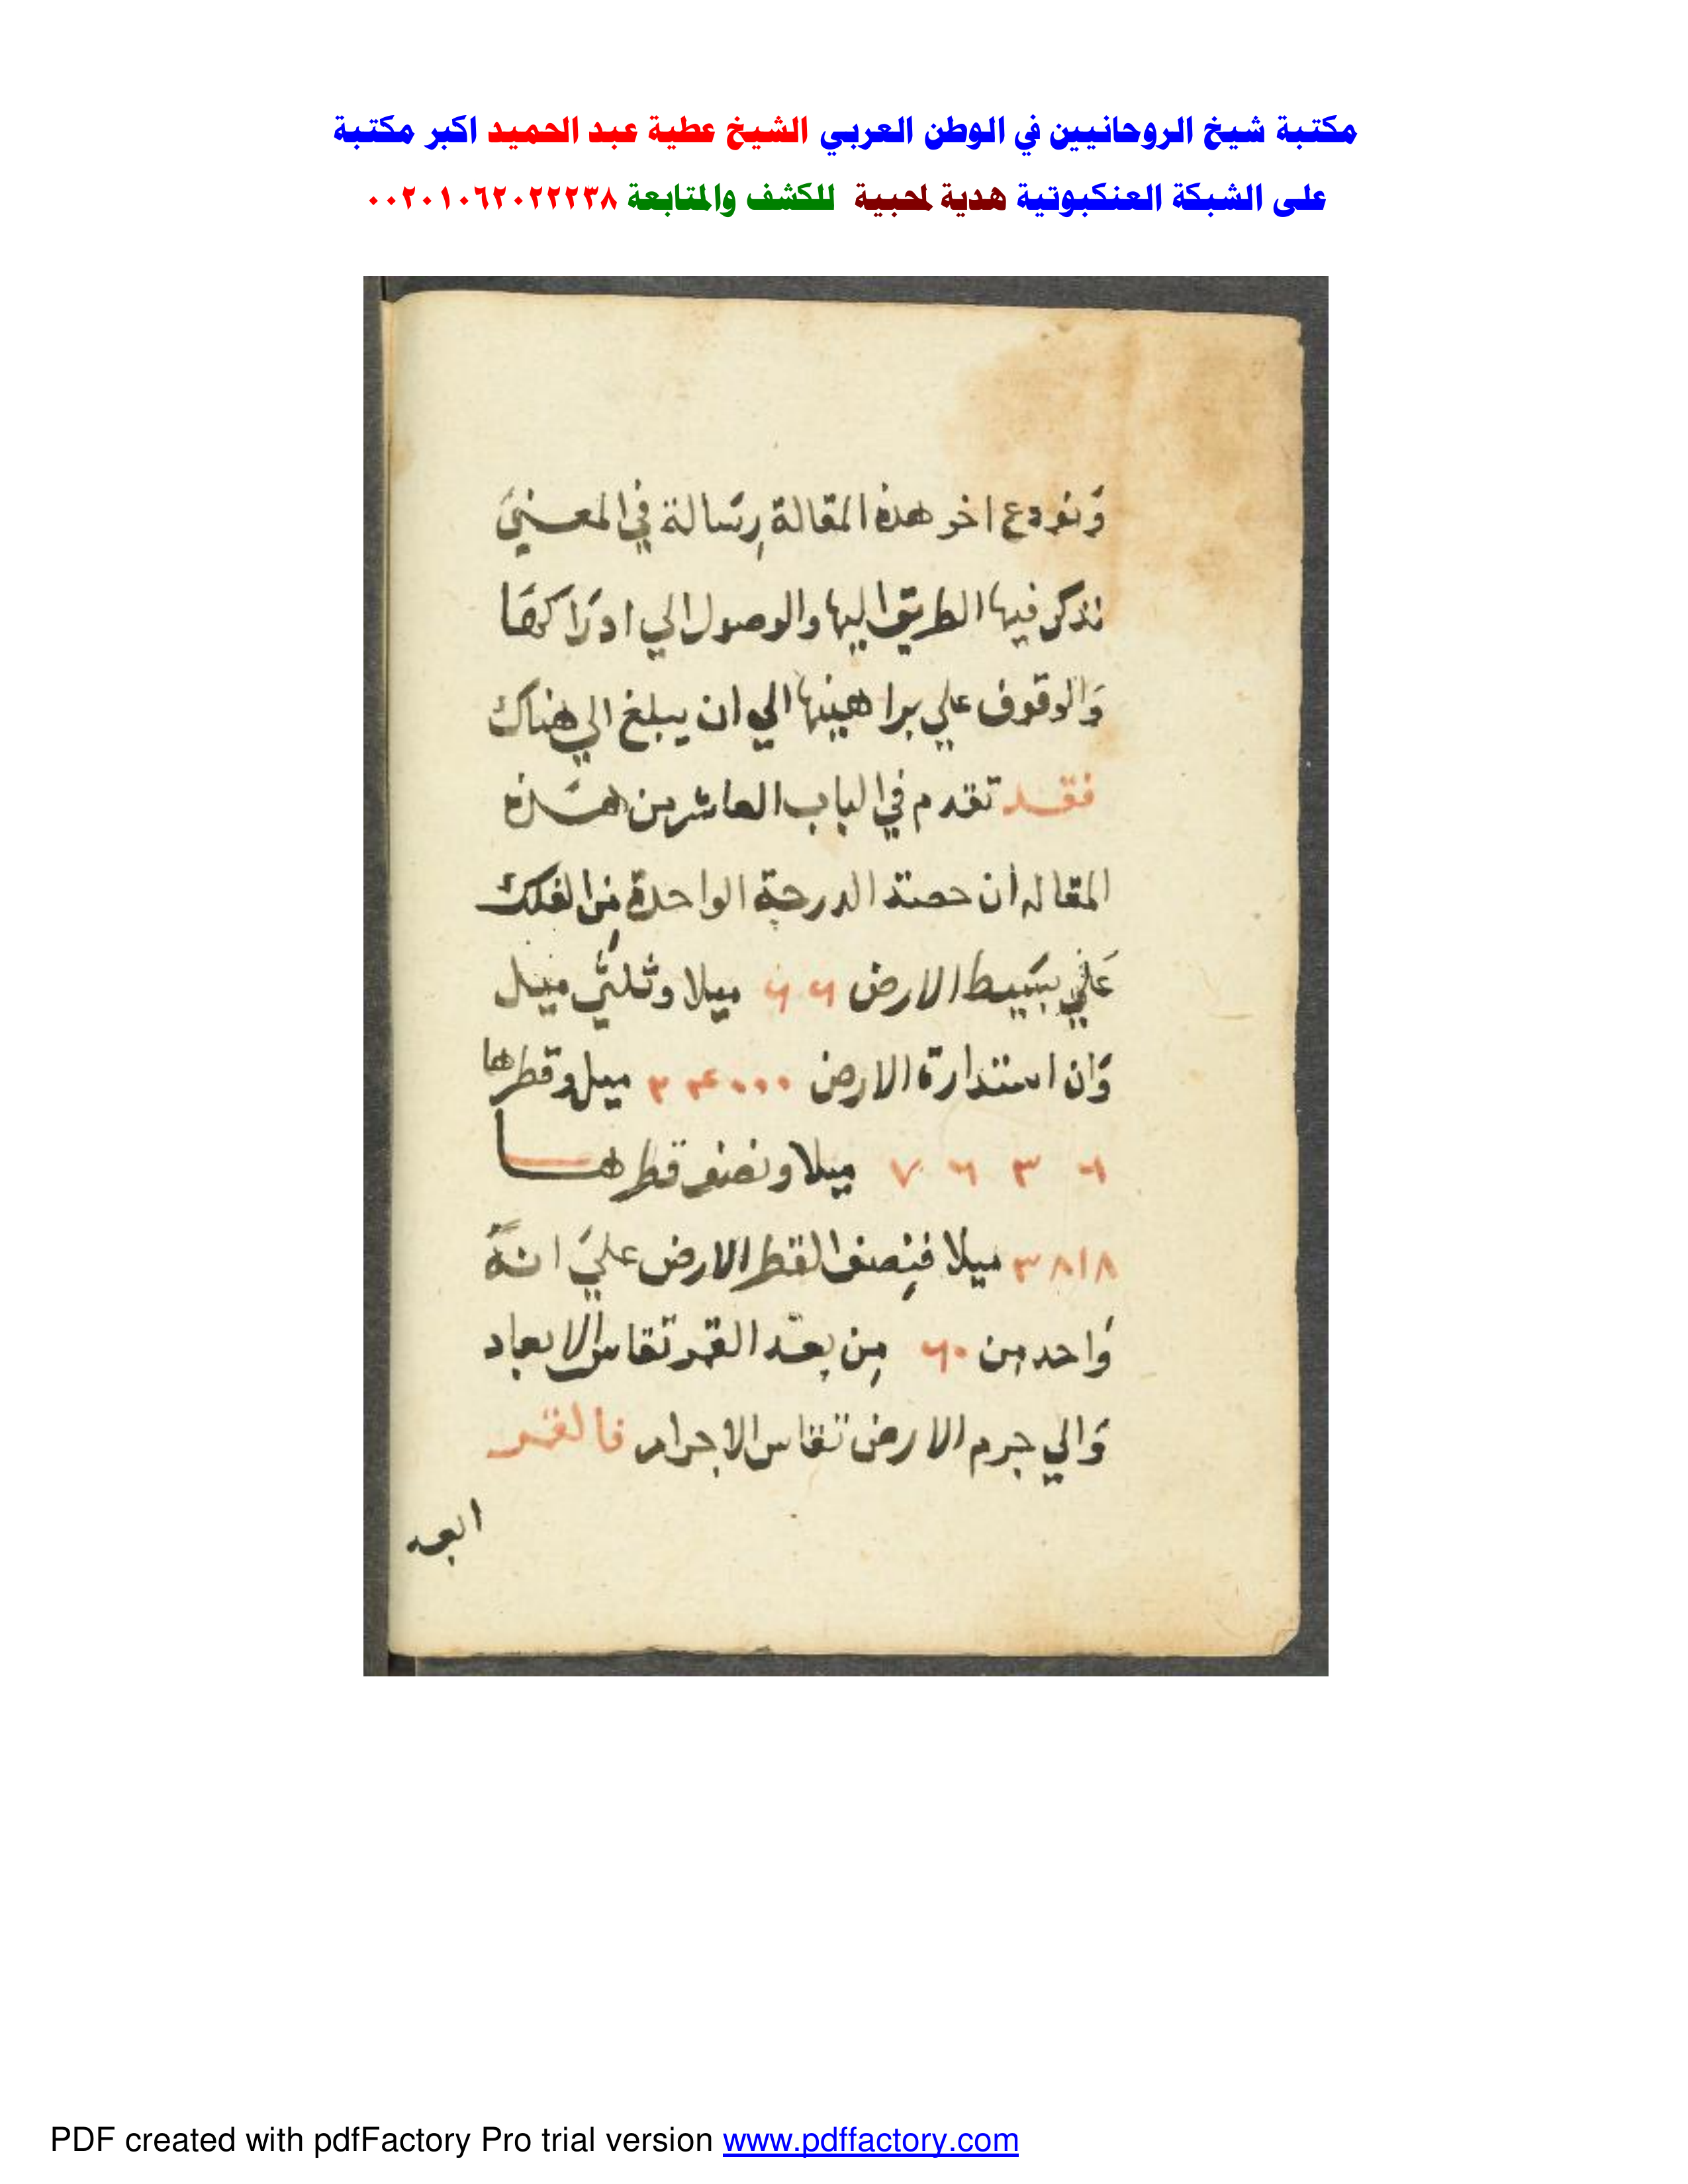 مكتبة شيخ الروحانيين في الوطن العربي الشيخ عطية عبد الحميد اكبر مكتبة
على الشبكة العنكبوتية هدية لمحبية للكشف والمتابعة ٠٠٢٠١٠٦٢٠٢٢٢٣٨
وَنودع اخر هذه المقالة رِسَالة في المعنيَ
نذكر فيها الطريق اليها والوصول الي ادرَاكهَا
وَالوقوف علي براهينها الي ان يبلغ الي هناك
فقد تقدم في الباب العاشر من هَذه
المقاله ان حصة الدرجة الواحدة مِن الفلك
عَلي بسَيط الارض ٦٦ ميلا وثلثَي ميل
وَان استدارة الارض ميل وقطرها
ميلا ونصف قطرها
٣٨١٨ ميلا فنِصف القطر الارض عليَ انهَ
وَاحد مِن ٦٠ مِن بعد القمر تقاس الابعاد
وَالي جرم الارض تقاس الاجرام فالقمر
ابعد
PDF created with pdfFactory Pro trial version www.pdffactory.com